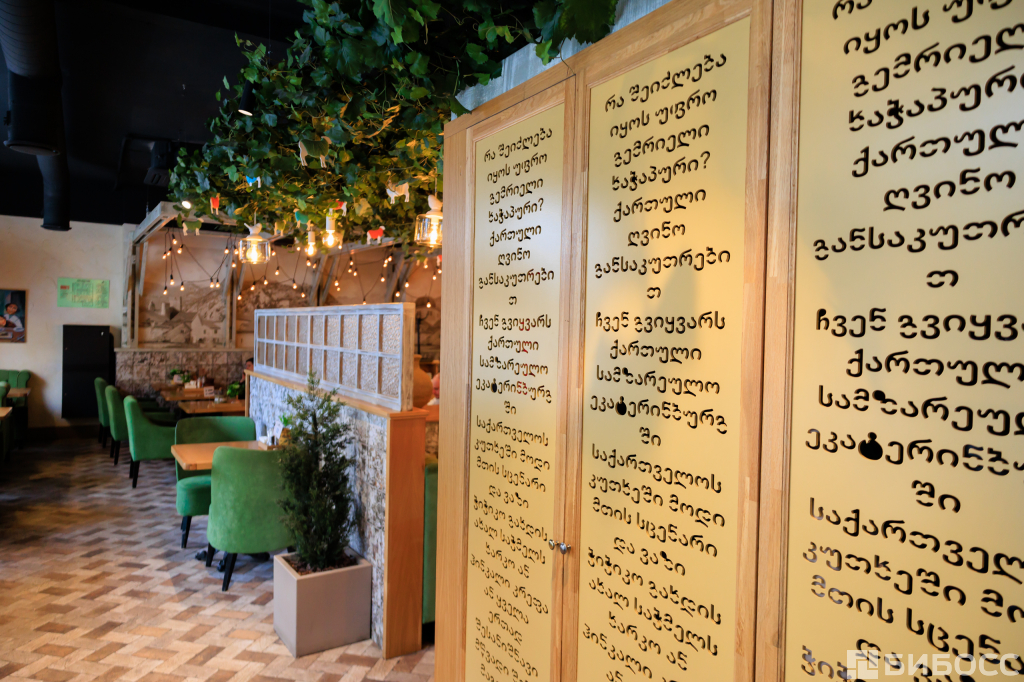 რა შეიძლება
იყოს უფრო
გემრიელი
ხაჭაპური?
ქართული
ღვინო
განსაკუთრები
თ
ჩვენ გვიყვარს
ქართული
სამზარეულო
ეკატერინბურგ
ში
საქართველოს
კუთხეში მოდი
მთის სცენარი
და ვაზი
ჭიჭიკო გახდის
ახალ საჭმელს
ხარკო ან
ჰინკალი კრეფა
ან ყველა
ერთად
შესანიშნავი
მწვადი
რა შეიძლება
იყოს უფრო
გემრიელი
ხაჭაპური?
ქართული
ღვინო
განსაკუთრები
თ
ჩვენ გვიყვარს
ქართული
სამზარეულო
ეკატერინბურგ
ში
საქართველოს
კუთხეში მოდი
მთის სცენარი
და ვაზი
ჭიჭიკო გახდის
ახალ საჭმელს
ხარკო ან
ჰინკალი
ან
რა
იყოს
გემრიელ
ხაჭაპური
ქართული
ღვინო
განსაკუთრ
თ
ჩვენ გვიყვ
ქართული
სამზარეულ
ეკატერინბუ
ში
საქართველ
კუთხეში მო
მთის სცენ
და
БИБОСС